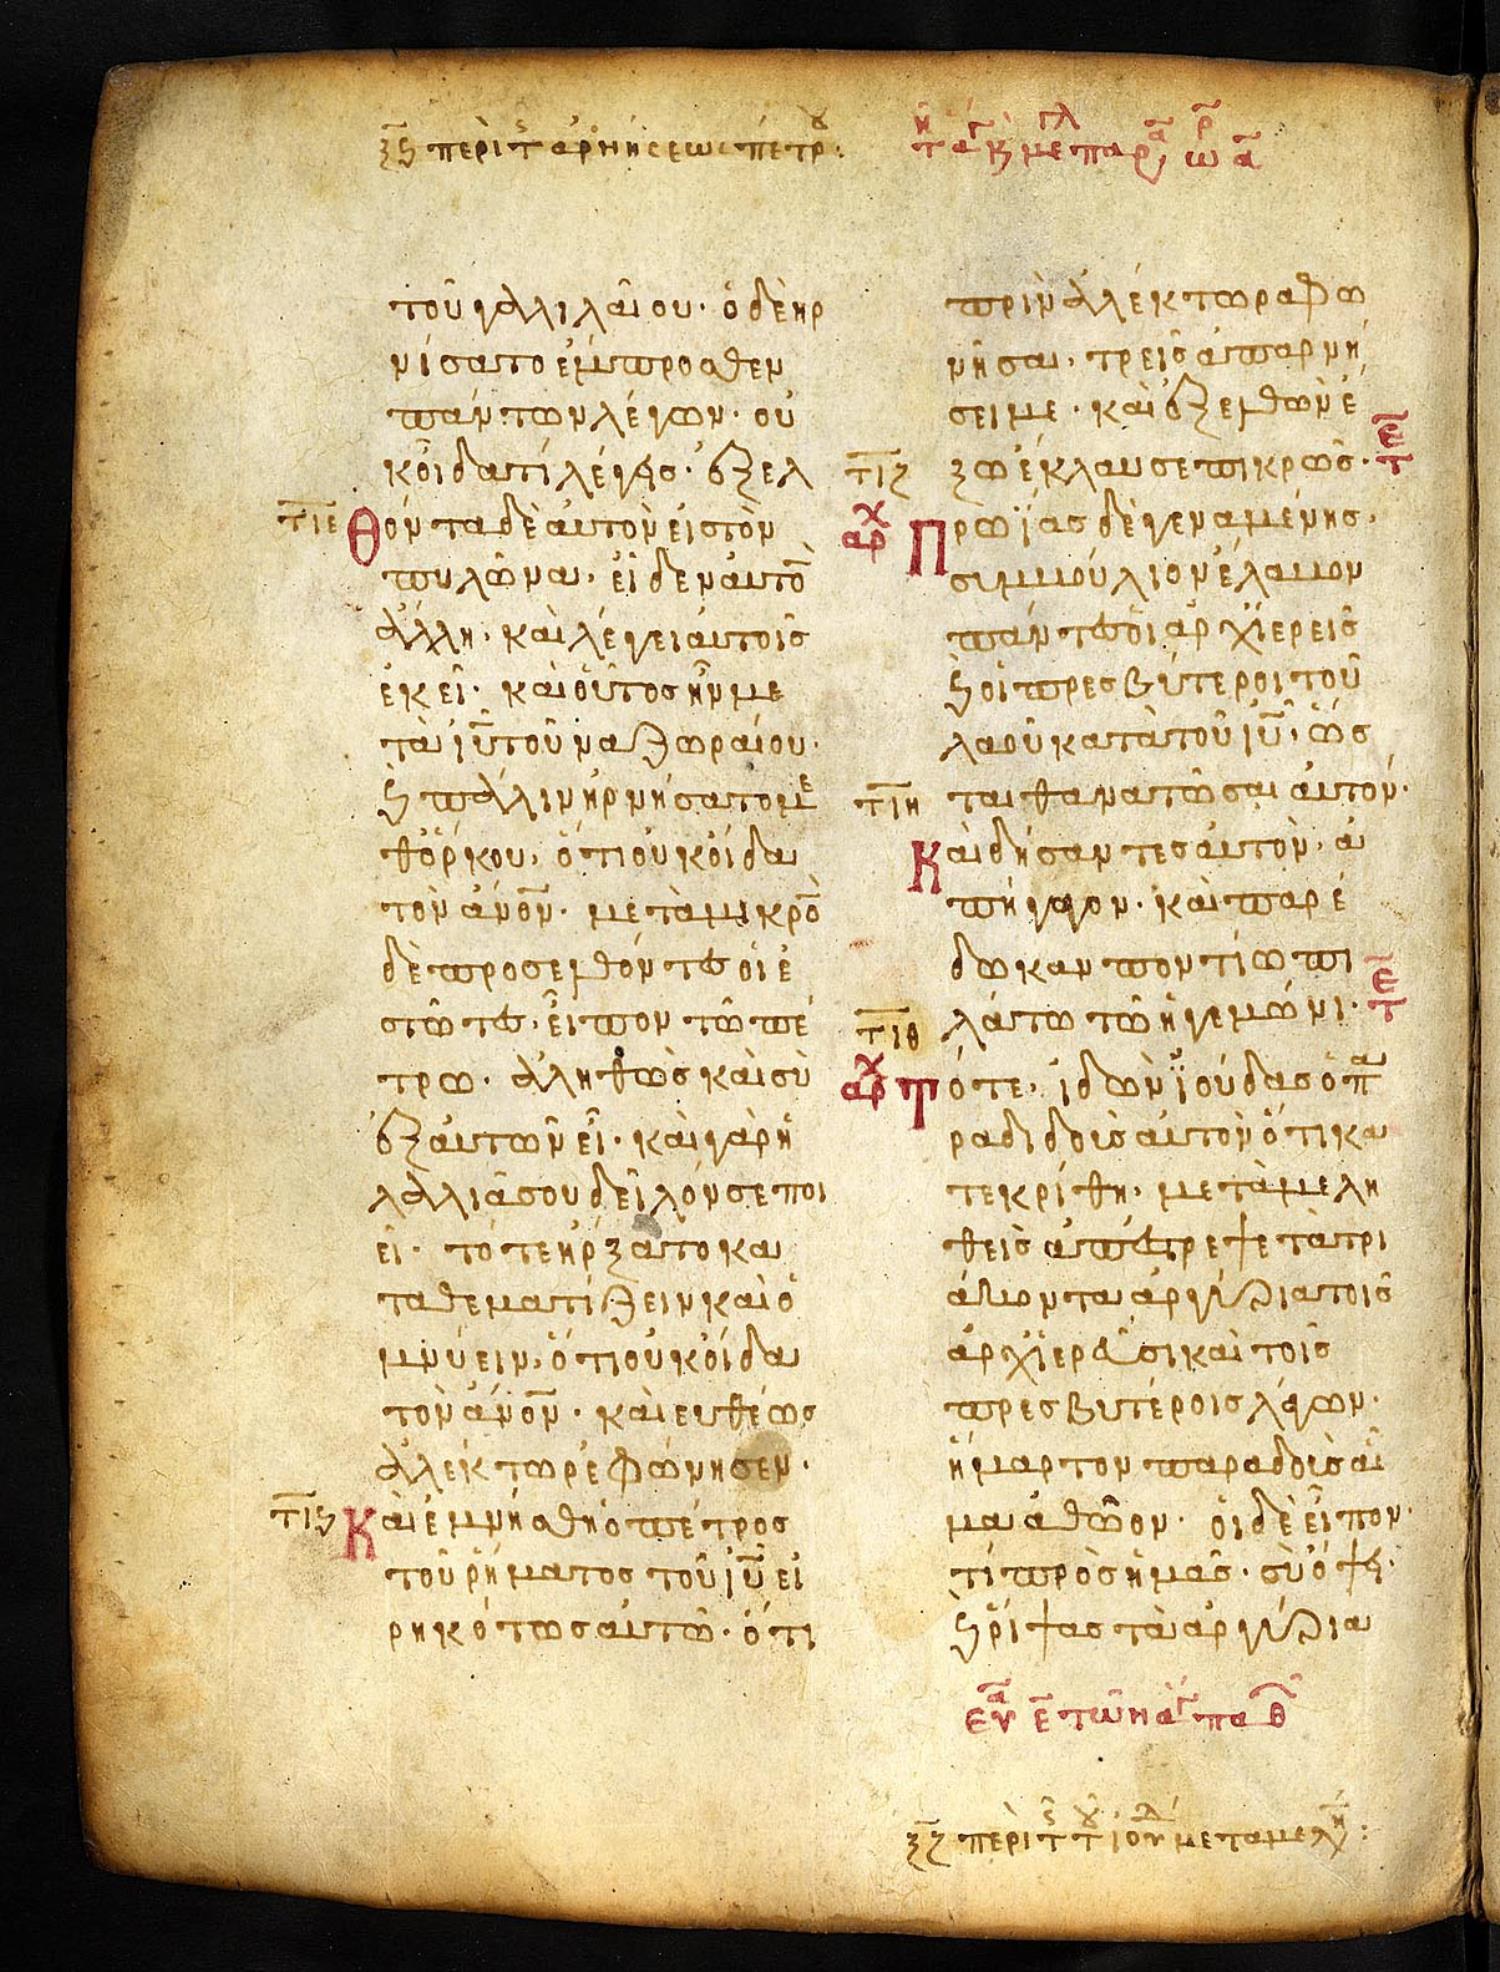 ξϛ περὶ τ ἀρνήσεως πέτρ:
τοῦ γαλιλαίου· ὁ δὲ ἠρ
νίσατο ἔμπροσθεν
πάντων λέγων· οὐ
κ οἶδα τί λέγεις· ἐξελ
τιε
θόντα δὲ αὐτὸν εἰς τὸν
πυλῶνα, εἶδεν αὐτὸ̅
ἄλλη, καὶ λέγει αὐτοῖς
ἐκεῖ· καὶ οὗτος ἦν με
τὰ ἰ̅υ̅ τοῦ ναζωραίου·
ϗ πάλιν ἠρνήσατο με
θ ὅρκου, ὅτι οὐκ οἶδα
τὸν ἄ̅ν̅ο̅ν̅· μετὰ μικρὸ̅
δὲ προσελθόντες οἱ ἑ
στῶτες, εἶπον τῶ πέ
τρω· ἀληθῶς καὶ σὺ
ἐξ αὐτῶν εἶ· καὶ γὰρ ἡ
λαλιά σου δεῖλόν σε ποι
εῖ· τότε ἤρξατο κα
ταθεματίζειν καὶ ὀ
μνύειν, ὅτι οὐκ οἶδα
τὸν ἄ̅ν̅ο̅ν̅· καὶ εὐθέως
ἀλέκτωρ ἐφώνησεν·
τιϛ
Καὶ ἐμνήσθη ὁ πέτρος
τοῦ ῥήματος τοῦ ἰ̅υ̅ εἰ
ρηκότως αὐτῶ· ὅτι
πρὶν ἀλέκτωρα φω
νῆσαι, τρεῖς ἀπαρνή
σει με· καὶ ἐξελθὼν ἔ
τιζ
ξω ἔκλαυσε πικρῶς·
ε̅τ
αρχ
Πρωΐας δὲ γεναμένης,
συμβούλιον ἔλαβον
πάντες οἱ ἀρχιερεῖς
ϗ οἱ πρεσβύτεροι τοῦ
λαοῦ κατὰ τοῦ ἰ̅υ̅, ὥσ
τιη
ται θανατῶσαι αὐτόν·
Καὶ δήσαντες αὐτὸν, ἀ
πήγαγον· καὶ παρέ
δωκαν ποντίω πι
τιθ
λάτω τῶ ἡγεμώνι·
ε̅τ
αρχ
Τότε, ἰδὼν ἰούδας ὁ πα
ραδιδοὺς αὐτὸν ὅτι κα
τεκρίθη, μεταμελη
θεὶς ἀπέστρεψε τὰ τρι
άκοντα ἀργύρια τοῖς
ἀρχιερεῦσι καὶ τοῖς
πρεσβυτέροις λέγων·
ἥμαρτον παραδοὺς αἷ
μα ἀθῶον· οἱ δὲ εἶπον·
τί πρὸς ἡμᾶς· σὺ ὄψει·
ϗ ῥίψας τὰ ἀργύρια
ξζ περὶ τ τ ἰού μεταμελ: